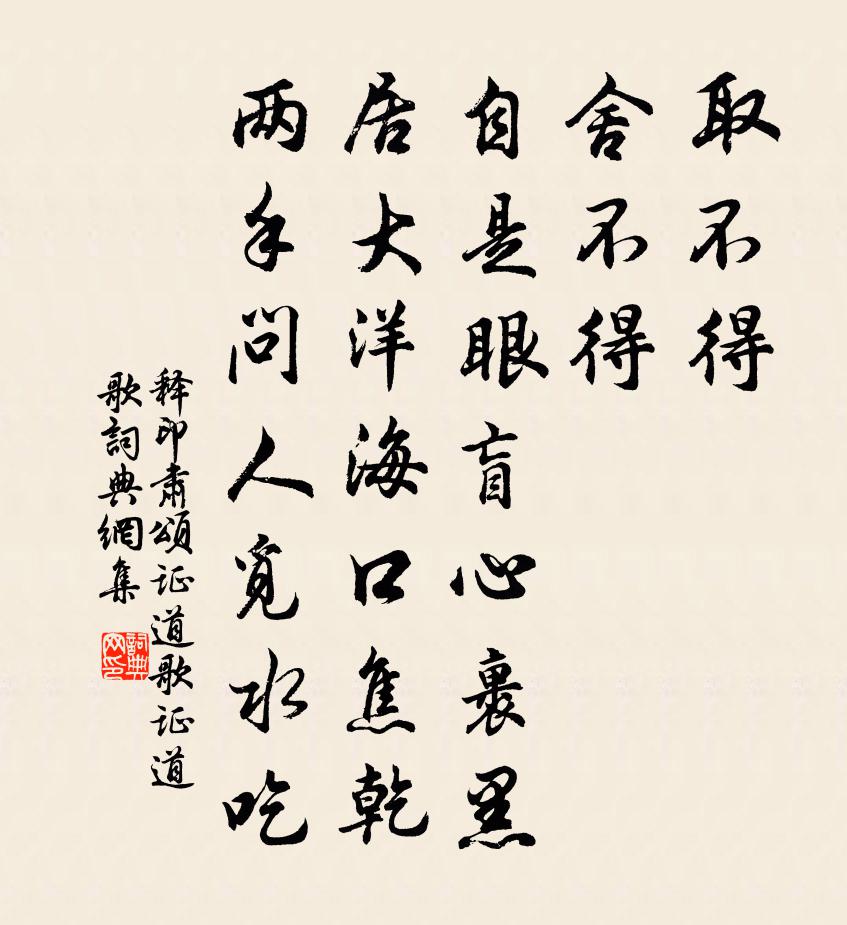 取不得
舍不得
自是眼盲心裹黑
居大洋海口焦乾
两手问人觅水吃
释印肃颂证道歌证道
歌詞典網集
詞典
网印